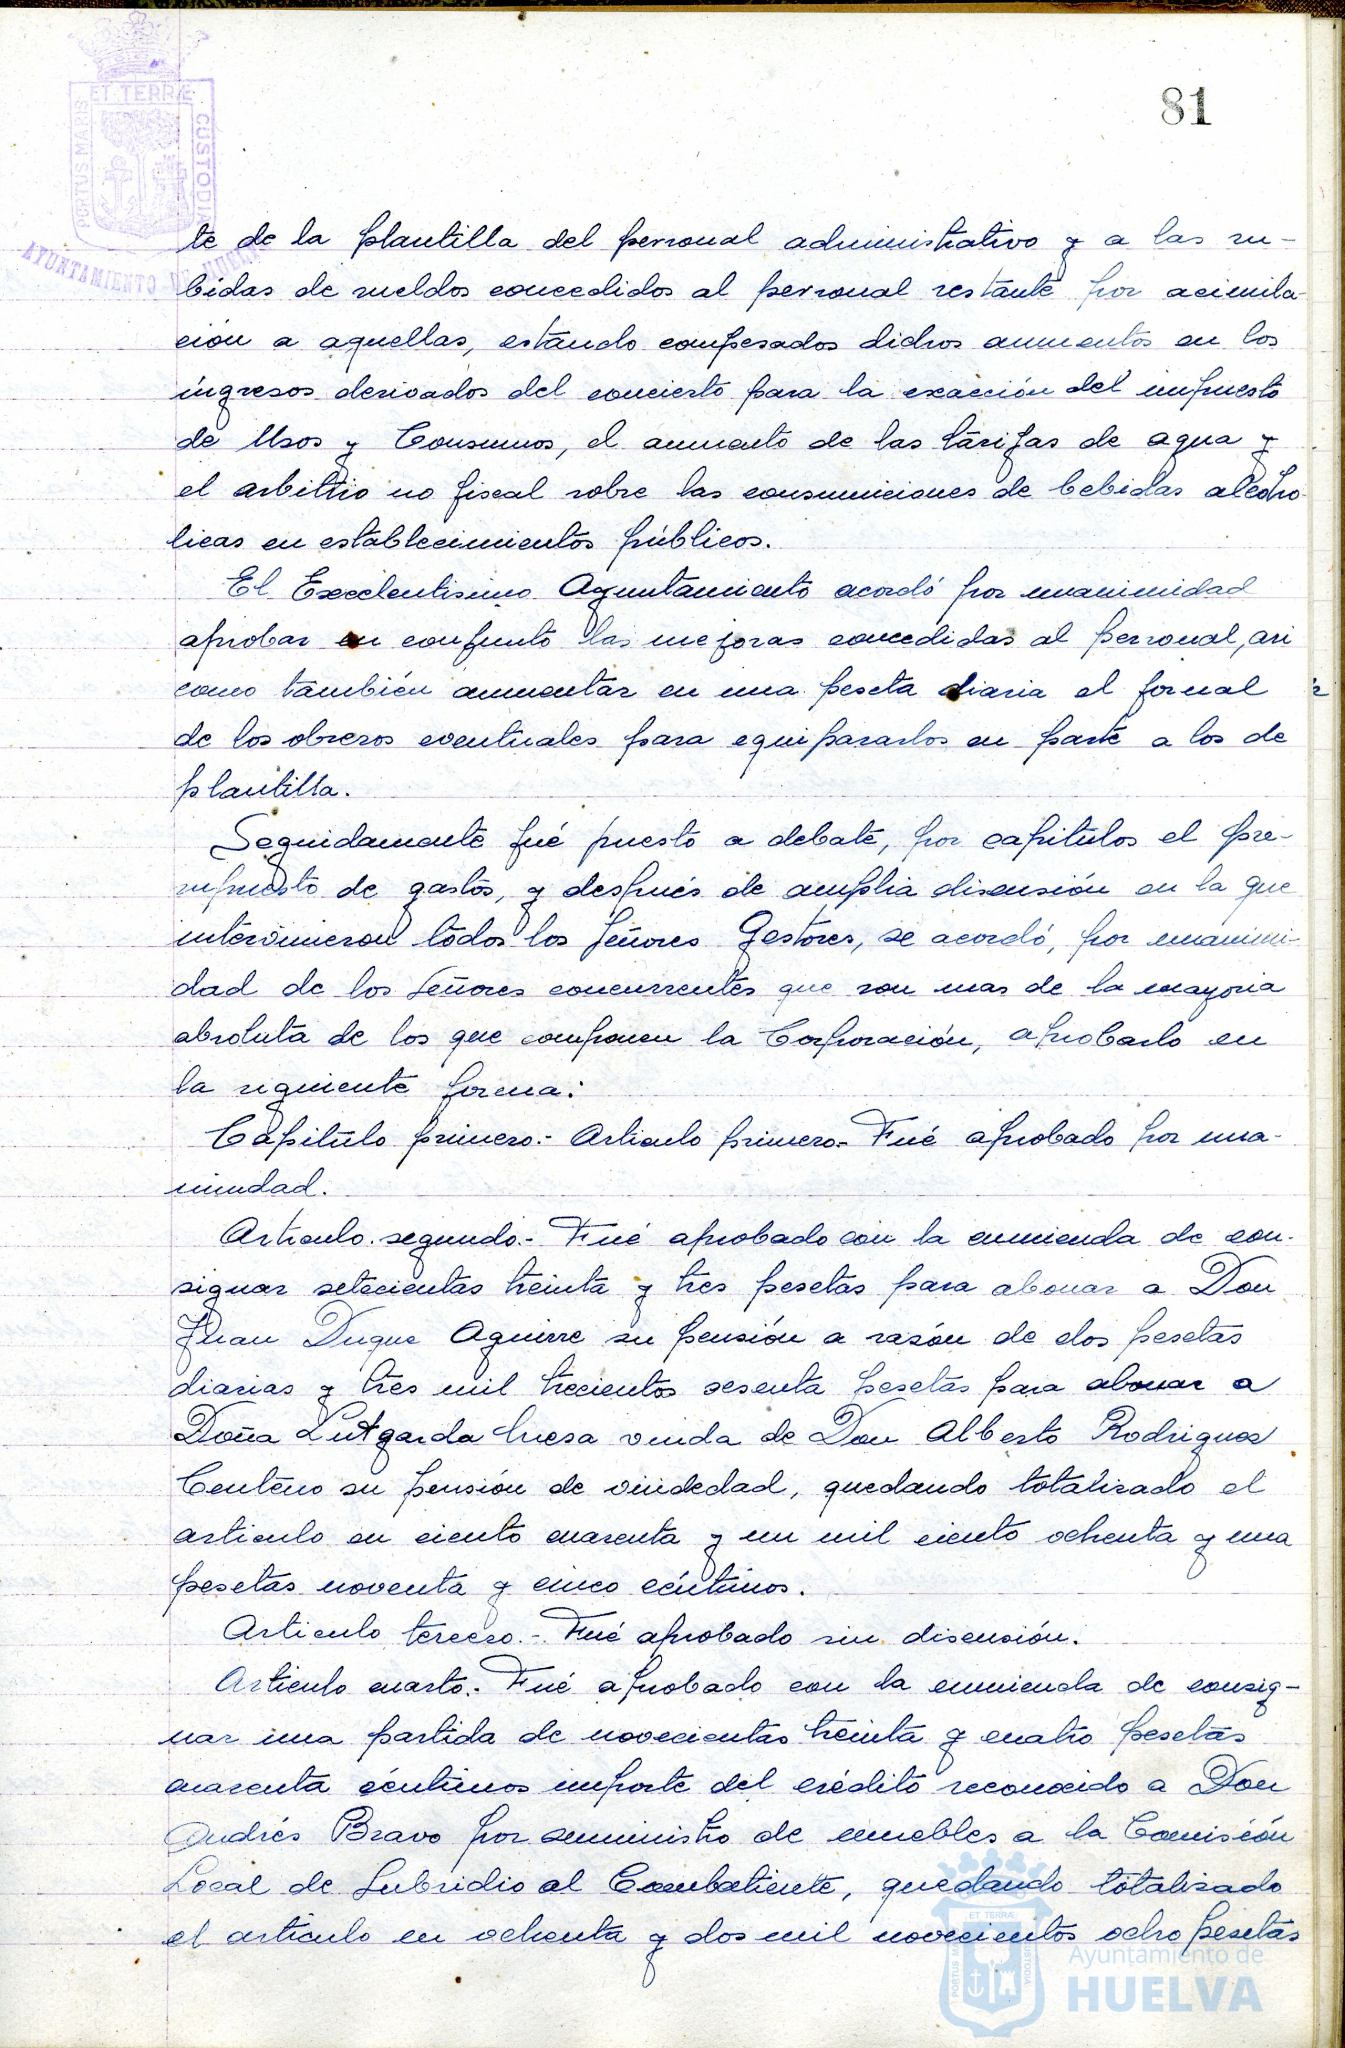 81
PORTUS MARIS ET TERRÆ CUSTODIA
AYUNTAMIENTO DE HUELVA
te de la plantilla del personal administrativo y a las su-
bidas de sueldos concedidos al personal restante por acimila-
ción a aquellas, estando compesados dichos aumentos en los
ingresos derivados del concierto para la exacción del impuesto
de Usos y Consumos, el aumento de las tarifas de agua y
el arbitrio no fiscal sobre las consumiciones de bebidas alcoho-
licas en establecimientos públicos.
El Excelentisimo Ayuntamiento acordó por unanimidad
aprobar en conjunto las mejoras concedidas al personal, asi
como también aumentar en una peseta diaria el jornal
de los obreros eventuales para equipararlos en parte a los de
plantilla.
Seguidamente fué puesto a debate, por capitulos el pre-
supuesto de gastos, y después de amplia discusión en la que
intervinieron todos los Señores Gestores, se acordó, por unanimi-
dad de los Señores concurrentes que son mas de la mayoria
absoluta de los que componen la Corporación, aprobarlo en
la siguiente forma:
Capitulo primero.- Articulo primero.- Fué aprobado por una-
nimidad.
Articulo segundo.- Fué aprobado con la enmienda de con-
signar setecientas treinta y tres pesetas para abonar a Don
Juan Duque Aguirre su pensión a razón de dos pesetas
diarias y tres mil trecientos sesenta pesetas para abonar a
Doña Lutgarda viuda de Don Alberto Rodriguez
Centeno su pensión de viudedad, quedando totalizado el
articulo en ciento cuarenta y un mil ciento ochenta y una
pesetas noventa y cinco céntimos.
Articulo tercero.- Fué aprobado sin discusión.
Articulo cuarto.- Fué aprobado con la enmienda de consig-
nar una partida de novecientas treinta y cuatro pesetas
cuarenta céntimos importe del crédito reconocido a Don
Andrés Bravo por suministro de muebles a la Comisión
Local de Subsidio al Combatiente, quedando totalizado
el articulo en ochenta y dos mil novecientos ocho pesetas
Ayuntamiento de
HUELVA